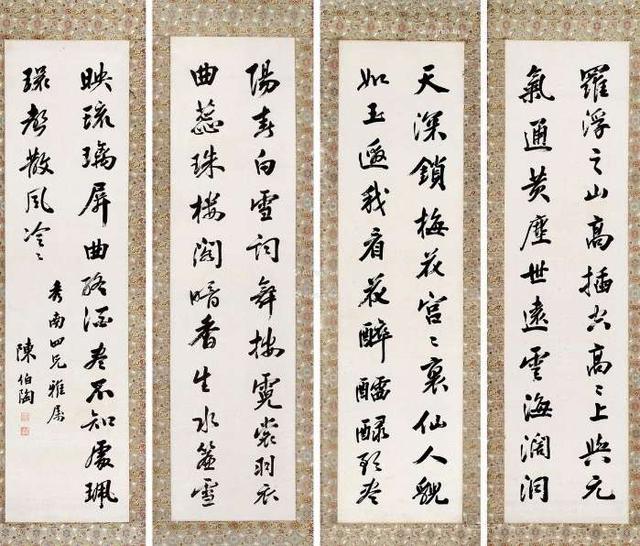 羅浮之山高插空高〻上與元
氣通黃塵世遠雲海濶洞
天深鎖梅花宮〻裏仙人貌
如玉邀我看花醉醽醁歌尽
陽春白雪詞舞按霓裳羽衣
曲蕊珠樓閣暗香生水簾雪
映琉璃屏曲終酒尽不知處珮
環聲散風泠〻
秀南四兄雅屬
陳伯陶